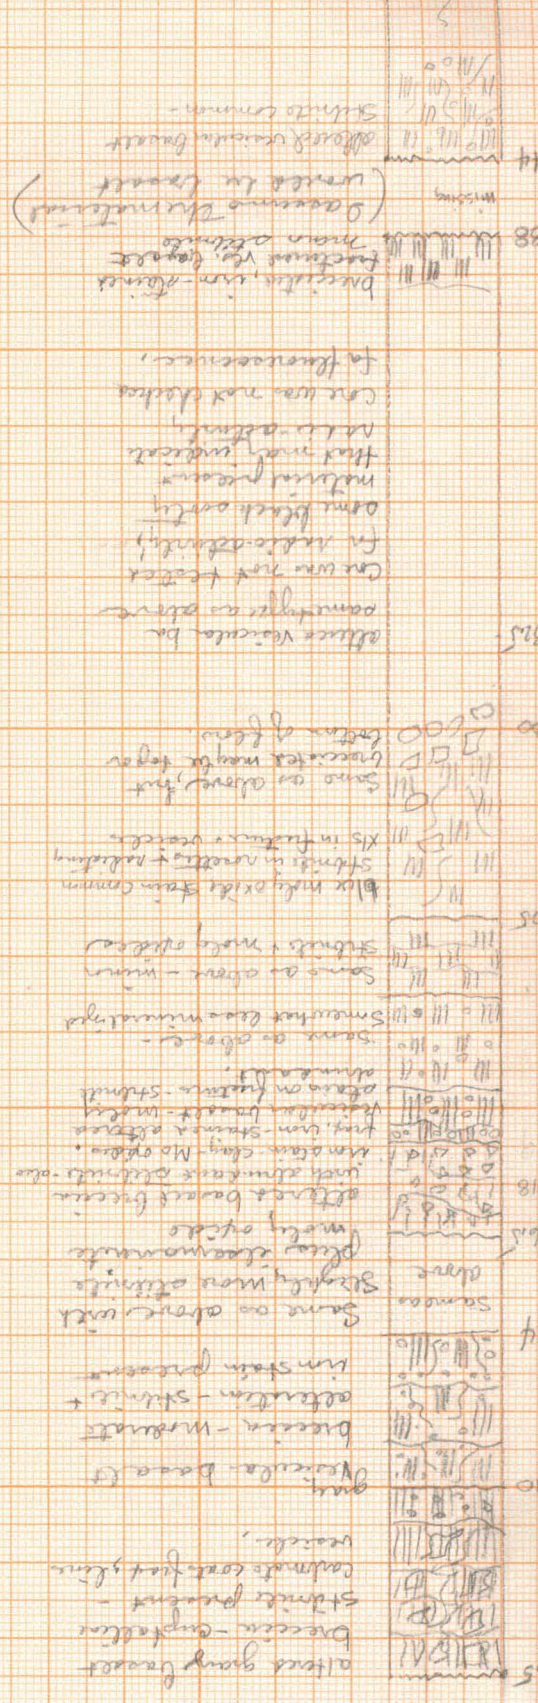 5
altered gray basalt
breccia - cryptalline
stilbite present -
carbonate coats frax, lines
vesicles,
10
gray
Vesicular basalt
breccia - moderate
alteration - stilbite +
iron stain present
4
Same as
above
Same as above, with
slightly more stilbite
plus ilsemannite
moly oxide
6.5
18
altered basalt breccia
with abundant stilbite - also
iron stain - clay - Mo oxides.
frax, iron-stained altered
vesicular basalt - moly
stain on fracture - stilbite
abundant.
same as above -
Somewhat less mineralized
Same as above - minor
stilbite + moly oxides
25
blue moly oxide stain common
stilbite in rosettes + radiating
xls in fractures + vesicles
Same as above, but
brecciated maybe top or
bottom of flow.
32.5
altered vesicular ba
same type as above
Core was not tested
for radio-activity,
some black sooty
material present
that may indicate
radio-activity
Core was not checked
for fluorescence,
brecciated, iron-stained
fractured ves. basalt
minor stilbite
38
missing
(I assume the material
would be basalt)
44
altered vesicular basalt
Stilbite common -
?